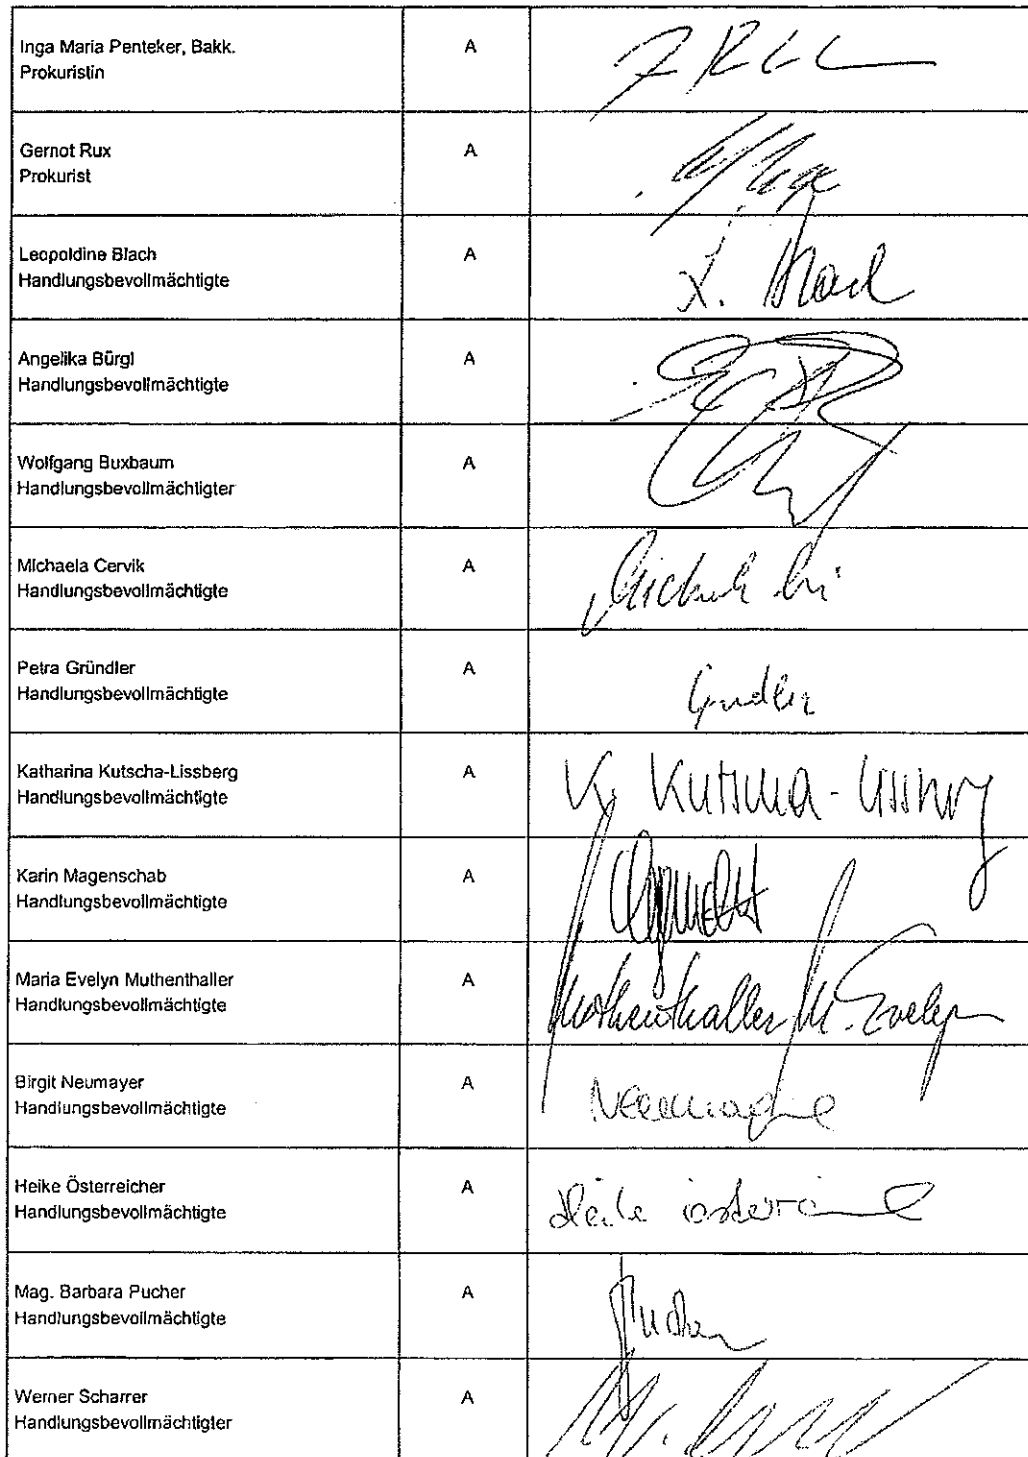 Inga Maria Penteker, Bakk.
Prokuristin
A
Gernot Rux
Prokurist
A
Leopoldine Blach
Handlungsbevollmächtigte
A
L. Blach
Angelika Bürgl
Handlungsbevollmächtigte
A
Wolfgang Buxbaum
Handlungsbevollmächtigter
A
Michaela Cervik
Handlungsbevollmächtigte
A
Petra Gründler
Handlungsbevollmächtigte
A
Gründler
Katharina Kutscha-Lissberg
Handlungsbevollmächtigte
A
K. Kutscha-Lissberg
Karin Magenschab
Handlungsbevollmächtigte
A
Maria Evelyn Muthenthaller
Handlungsbevollmächtigte
A
Muthenthaller M. Evelyn
Birgit Neumayer
Handlungsbevollmächtigte
A
Neumayer
Heike Österreicher
Handlungsbevollmächtigte
A
Heike Österreicher
Mag. Barbara Pucher
Handlungsbevollmächtigte
A
Pucher
Werner Scharrer
Handlungsbevollmächtigter
A